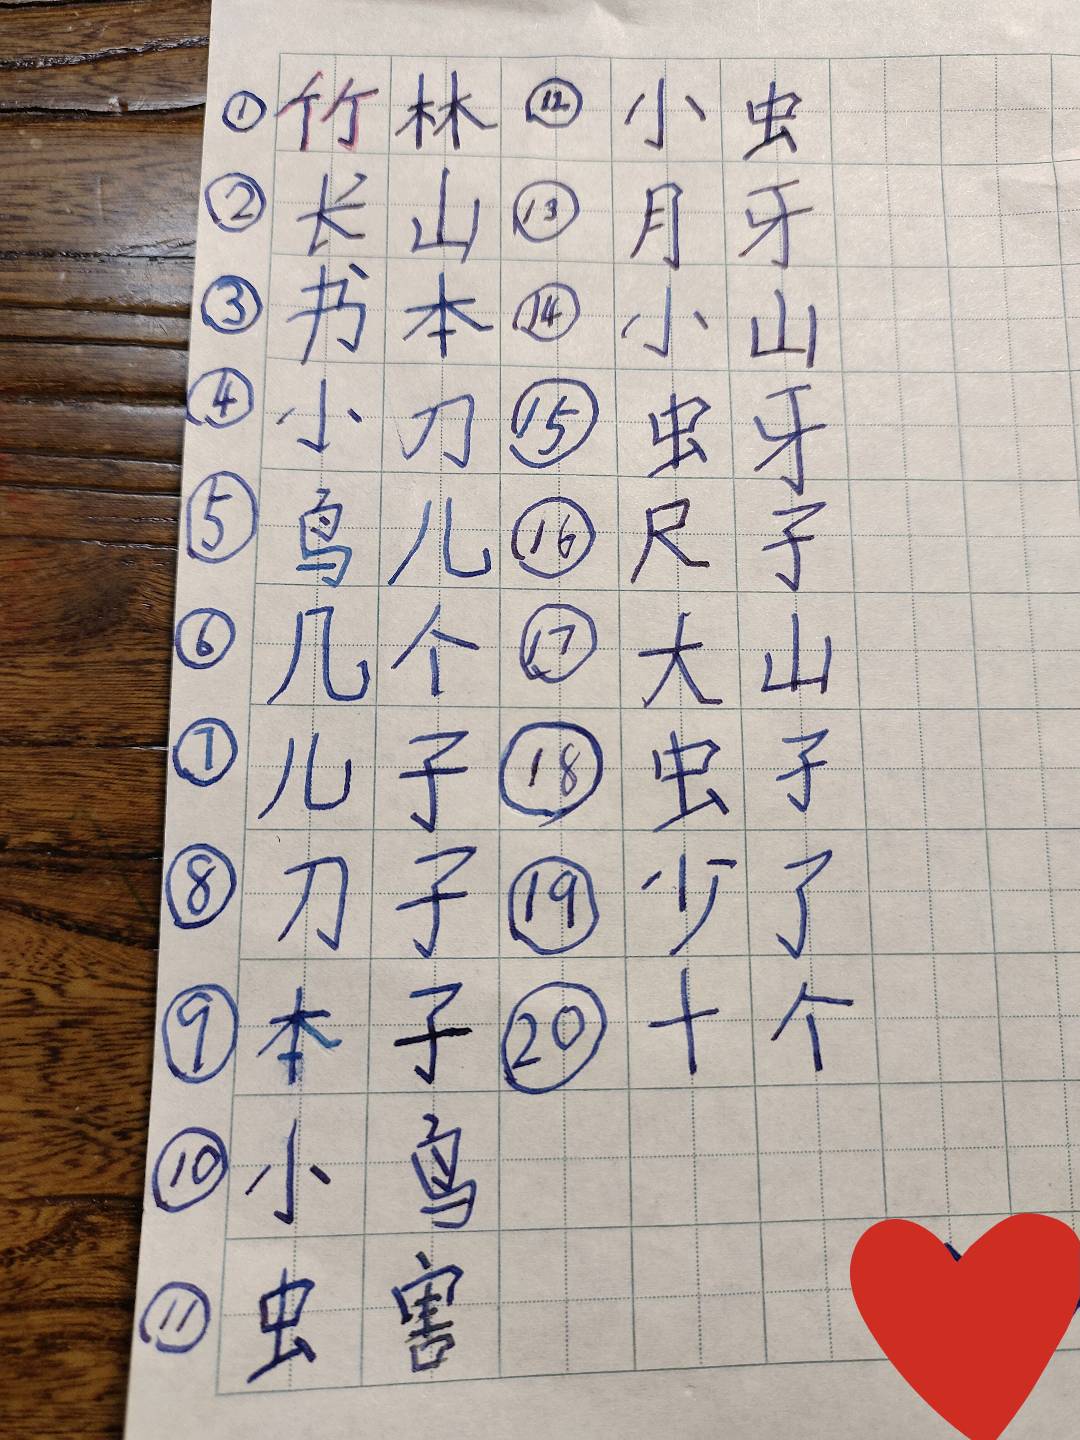 ① 竹林 ⑫ 小虫
② 长山 ⑬ 月牙
③ 书本 ⑭ 小山
④ 小刀 ⑮ 虫牙
⑤ 鸟儿 ⑯ 尺子
⑥ 几个 ⑰ 大山
⑦ 儿子 ⑱ 虫子
⑧ 刀子 ⑲ 少了
⑨ 本子 ⑳ 十个
⑩ 小鸟
⑪ 虫害